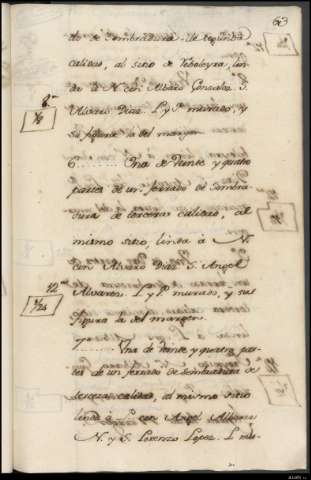 63
do de sembradura de segunda
calidad, al sitio de Teboleyra, lin-
da à N. con Alvaro Gonzalez S.
Alvaro Diaz L. y P. murado, y
su figura la del margen
6 Una de veinte y quatro
partes de un ferrado de sembra-
dura de tercera calidad, al
mismo sitio, linda à N.
con Alvaro Diaz S. Angel
Alvarez L. y P. murado, y su
figura la del margen
7 Una de veinte y quatro par-
tes de un ferrado de sembradura de
tercera calidad, al mismo sitio
linda à L. con Angel Alvarez
N. y S. Lorenzo Lopez P. mu-